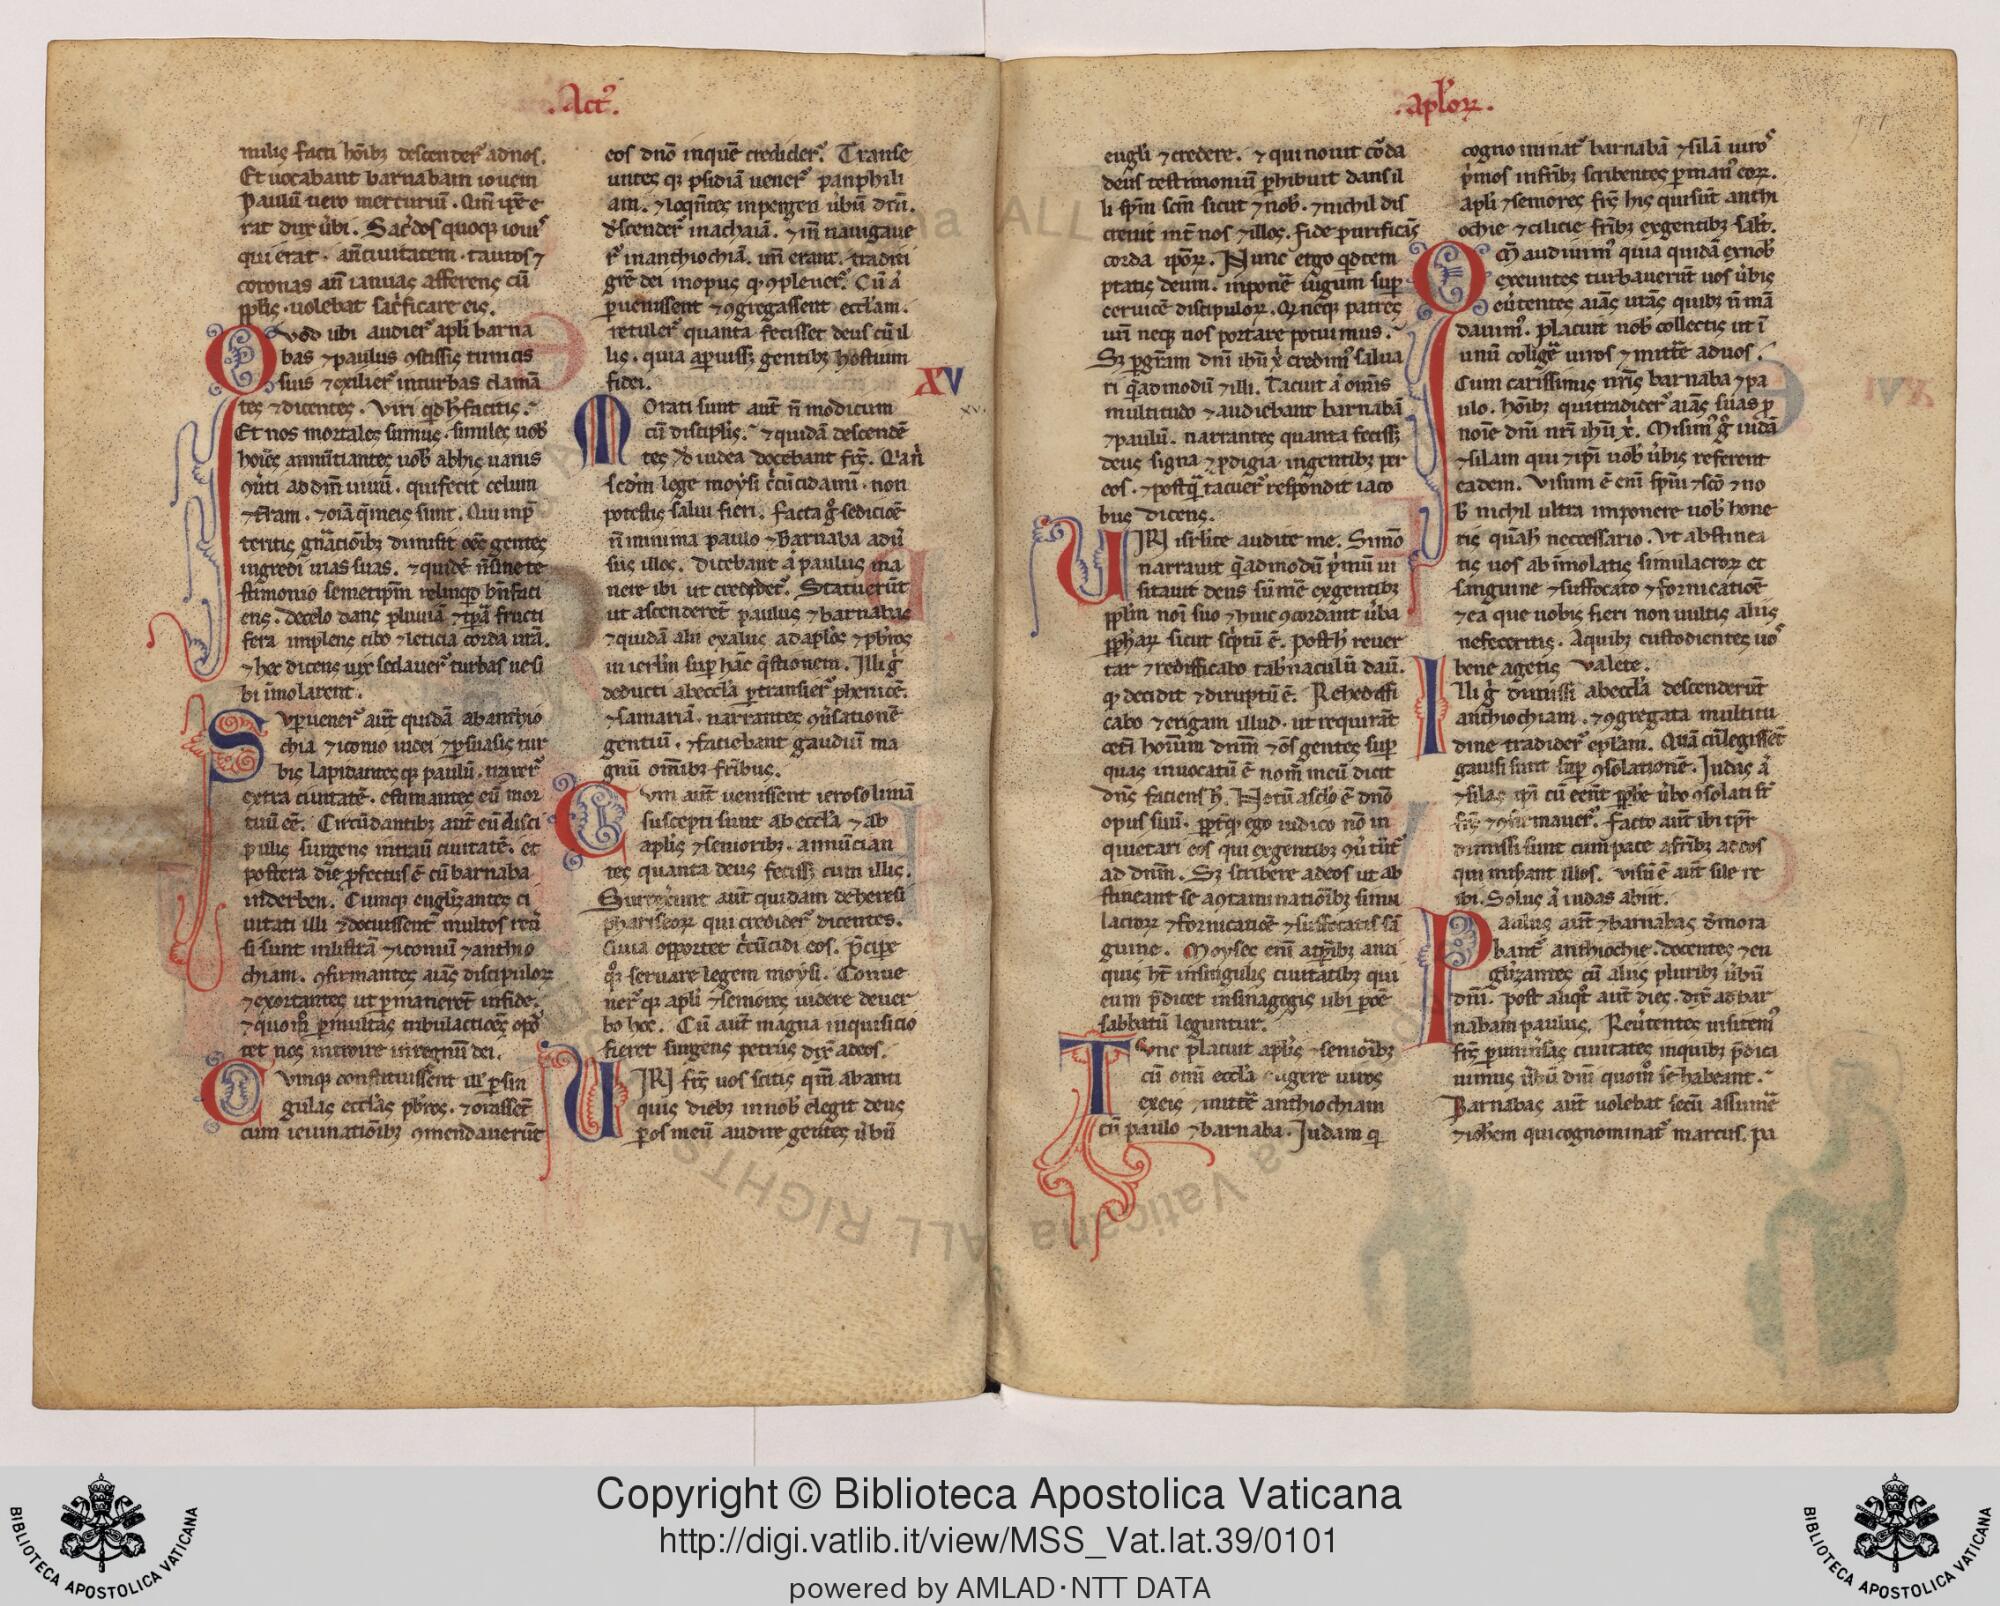 .Act᾿.
milis facti hoĩbꝫ descender᾿ ad nos.
Et uocabant barnabam iouem
paulũ uero mercuriũ. Qm̃ ip̃e e
rat dux ũbi. Sac̃dos quoqꝫ iouis
qui erat. añ ciuitatem. tauros ⁊
coronas añ ianuas afferens cũ
ppl̃is. uolebat sac̃ficare eis.
Quod ubi audier᾿ apl̃i barna
bas ⁊ paulus ꝯscissis tunicis
suis ⁊ exilier᾿ in turbas clamã
tes ⁊ dicentes. Viri qd h̃ facitis.
Et nos mortales sumus. similes uob̃
hoĩes annũtiantes uob̃ ab his uanis
ꝯũti ad dm̃ uiuũ. qui fecit celum
⁊ t̃ram. ⁊ oĩa q̃ in eis sunt. Qui in p̃
teritis gñatiõibꝫ dimisit oẽs gentes
ingredi uias suas. ⁊ quidẽ ñ sine te
stimonio semetip̃m reliquid bñ faci
ens. de celo dans pluuiã ⁊ tp̃a fructi
fera implens cibo ⁊ leticia corda ur̃a.
⁊ hec dicens uix sedauer᾿ turbas ne si
bi ĩmolarent.
Supuener᾿ aut̃ quidã ab anthio
chia ⁊ iconio iudei ⁊ p̃suasis tur
bis lapidantes qꝫ paulũ. traxer᾿
extra ciuitatẽ. estimantes eũ mor
tuũ eẽ. Circũdantibꝫ aut̃ eũ disci
pulis surgens intrauit ciuitatẽ. et
postera die p̃fectus ẽ cũ barnaba
in derben. Cumqꝫ eugl̃izantes ci
uitati illi ⁊ docuissent multos reũ
si sunt in listrã ⁊ iconiũ ⁊ anthio
chiam. ꝯfirmantes aĩas discipuloꝝ
⁊ exortantes ut p̃manerẽt in fide.
⁊ quom̃ p̃ multas tribulactiões opo
tet nos introire in regnũ dei.
Cumqꝫ constituissent ill᾿ p̃ sin
gulas eccl̃as pb̃ros. ⁊ orassẽt
cum ieiunatiõibꝫ ꝯmendauerũt
eos dño in quẽ credider᾿. Transe
untes qꝫ psidiã uener᾿ panphili
am. ⁊ loqñtes in pergen ũbũ dm̃.
descender᾿ in achaiã. ⁊ in̄ nauigaue
r᾿ in anthiochiã. un̄ erant. traditi
gr̃e dei in opus qꝫ ꝯpleuer᾿. Cũ ã
p̃uenissent ⁊ ꝯgregassent eccl̃am.
retuler᾿ quanta fecisset deus cũ il
lis. quia apuissꝫ gentibꝫ hostium
fidei.
XV
Morati sunt aut̃ ñ modicum
cũ discipl̃is. ⁊ quidã descendẽ
tes de iudea docebant fr̃s. Q᾿a ñ
sc̃dm lege moysi c̃cũcidami. non
potestis salui fieri. Facta g̃ sedicioẽ
ñ minima paulo ⁊ Barnaba adũ
sus illos. dicebant ã paulus ma
nere ibi ut creder̃᾿. Statuerũt
ut ascenderẽt paulus ⁊ barnabas
⁊ quidã alii ex aliis ad apl̃os ⁊ pb̃ros
in ierl̃m sup hãc q̃stionem. Illi g̃
deducti ab eccl̃a p̃transier᾿ phenicẽ.
⁊ samariã. narrantes ꝯũsationẽ
gentiũ. ⁊ faciebant gaudiũ ma
gnũ omĩbꝫ fribus.
Cum aut̃ uenissent ierosolimã
suscepti sunt ab eccl̃a ⁊ ab
aplĩs ⁊ senioribꝫ. annũcian
tes quanta deus fecissꝫ cum illis.
Surrexerunt aut̃ quidam de heresi
phariseoꝝ qui credider᾿ dicentes.
Quia opportet c̃cũcidi eos. p̃cipe
qꝫ seruare legem moysi. Conue
ner᾿ qꝫ apl̃i ⁊ seniores uidere de uer
bo hoc. Cũ aut̃ magna inquisicio
fieret surgens petrus dix̃ ad eos.
UIRI fr̃s uos scitis qm̃ ab anti
quis diebꝫ in nob̃ elegit deus
p̃ os meũ audire gentes ũbũ
.aploꝝ.
eugl̃i ⁊ credere. ⁊ qui nouit corda
deus testimoniũ p̃hibuit dans il
li sp̃m scm̃ sicut ⁊ nob̃. ⁊ nichil dis
creuit int̃ nos ⁊ illos. fide purificãs
corda ipõꝝ. Nunc ergo qd tem
ptatis deum. inponẽ iugum sup
ceruicẽ discipuloꝝ. Q᾿ neqꝫ patres
ur̃i neqꝫ nos portare potuimus.
Sꝫ p̃ gr̃am dni ihũ x̃ credim᾿ salua
ri q̃ad modũ ⁊ illi. Tacuit ã omĩs
multitudo ⁊ audiebant barnabã
⁊ paulũ. narrantes quanta fecissꝫ
deus signa ⁊ p̃digia in gentibꝫ per
eos. ⁊ postq̃ tacuer᾿ respondit iaco
bus dicens.
UIRI isrl̃ite audite me. Simõ
narrauit q̃ad modũ p̃mũ ui
sitauit deus sũmẽ ex gentibꝫ
ppl̃m noĩ suo ⁊ huic ꝯcordant ũba
pphaꝝ sicut sc̃ptũ ẽ. Post h̃ reuer
tar ⁊ redifficabo tab̃naculũ dauĩ.
qꝫ decidit ⁊ diruptũ ẽ. Rehedeffi
cabo ⁊ erigam illud. ut requirãt
cet̃i hoĩum dnm̃ ⁊ oẽs gentes sup
quas inuocatũ ẽ nom̃ meũ dicit
dñs faciens h̃. Notũ a sclo ẽ dño
opus suũ. pp̃tqꝫ ego iudico nõ in
quietari eos qui ex gentibꝫ ꝯũtũt᾿
ad dnm̃. Sꝫ scribere ad eos ut ab
stineant se a ꝯtaminatiõibꝫ simu
lacroꝝ ⁊ fornicatiõe ⁊ suffocatis sã
guine. Moyses enĩ a tp̃ribꝫ anti
quis ht̃ in singulis ciuitatibꝫ qui
eum p̃dicet in sinagogis ubi p̃ oẽ
sabbatũ leguntur.
Tunc placuit apl̃is ⁊ seniorĩbꝫ
cũ omĩ eccl̃a eligere uiros
ex eis ⁊ mittẽ anthiochiam
cũ paulo ⁊ barnaba. Judam q̃
cognominat᾿ barnabã ⁊ silã uiros
p̃mos in frĩbꝫ scribentes p̃ man᾿ eoꝝ.
apl̃i ⁊ seniores fr̃s his qui sũt anthi
ochie ⁊ cilicie frĩbꝫ ex gentibꝫ salt̃.
Qm̃ audiuim᾿ quia quidã ex nob̃
exeuntes turbauerũt uos ũbis
eũtentes aĩas ur̃as quibꝫ ñ mã
dauim᾿. placuit nob̃ collectis ut ĩ
unũ coligẽ uiros ⁊ mittẽ ad uos.
Cum carissimis nr̃is barnaba ⁊ pa
ulo. hoĩbꝫ qui tradider᾿ aĩas suas p̃
noĩe dni nr̃i ihũ x̃. Misim᾿ g̃ iudã
⁊ silam qui ⁊ ip̃i uob̃ ũbis referent
eadem. Visum ẽ enĩ spũi sc̃o ⁊ no
b̃ nichil ultra imponere uob̃ hone
ris quã h̃ neccessario. Vt abstinea
tis uos ab ĩmolatis simulacroꝝ et
sanguine ⁊ suffocato ⁊ fornicatiõe
⁊ ea que uobis fieri non uultis aliis
ne feceritis. A quibꝫ custodientes uos
bene agetis valete.
Illi g̃ dimissi ab eccl̃a descenderũt
anthiochiam. ⁊ ꝯgregata multitu
dine tradider᾿ epl̃am. Quã cũ legissẽt
gauisi sunt sup ꝯsolationẽ. Judas ã
⁊ silas ip̃i cũ eent̃ pp̃he ũbo ꝯsolati st̃
fr̃s ⁊ ꝯfirmauer᾿. Facto aut̃ ibi tp̃r
dimissi sunt cum pace a frĩbꝫ ad eos
qui miserant illos. Visũ ẽ aut̃ sile re
ibi. Solus ã iudas abiit.
Paulus aut̃ ⁊ barnabas demora
bant᾿ anthiochie. docentes ⁊ eu
gl̃izantes cũ aliis pluribꝫ ũbũ
dni. Post aliqt᾿ aut̃ dies. dix̃ ad bar
nabam paulus. Reũtentes uisitem᾿
fr̃s p̃ uniũsas ciuitates in quibꝫ p̃dica
uimus ũbũ dni quom̃ se habeant.
Barnabas aut̃ uolebat secũ assumẽ
⁊ ioh̃em qui cognominat᾿ marcus. pa
Copyright © Biblioteca Apostolica Vaticana
http://digi.vatlib.it/view/MSS_Vat.lat.39/0101
powered by AMLAD·NTT DATA
BIBLIOTECA APOSTOLICA VATICANA
BIBLIOTECA APOSTOLICA VATICANA